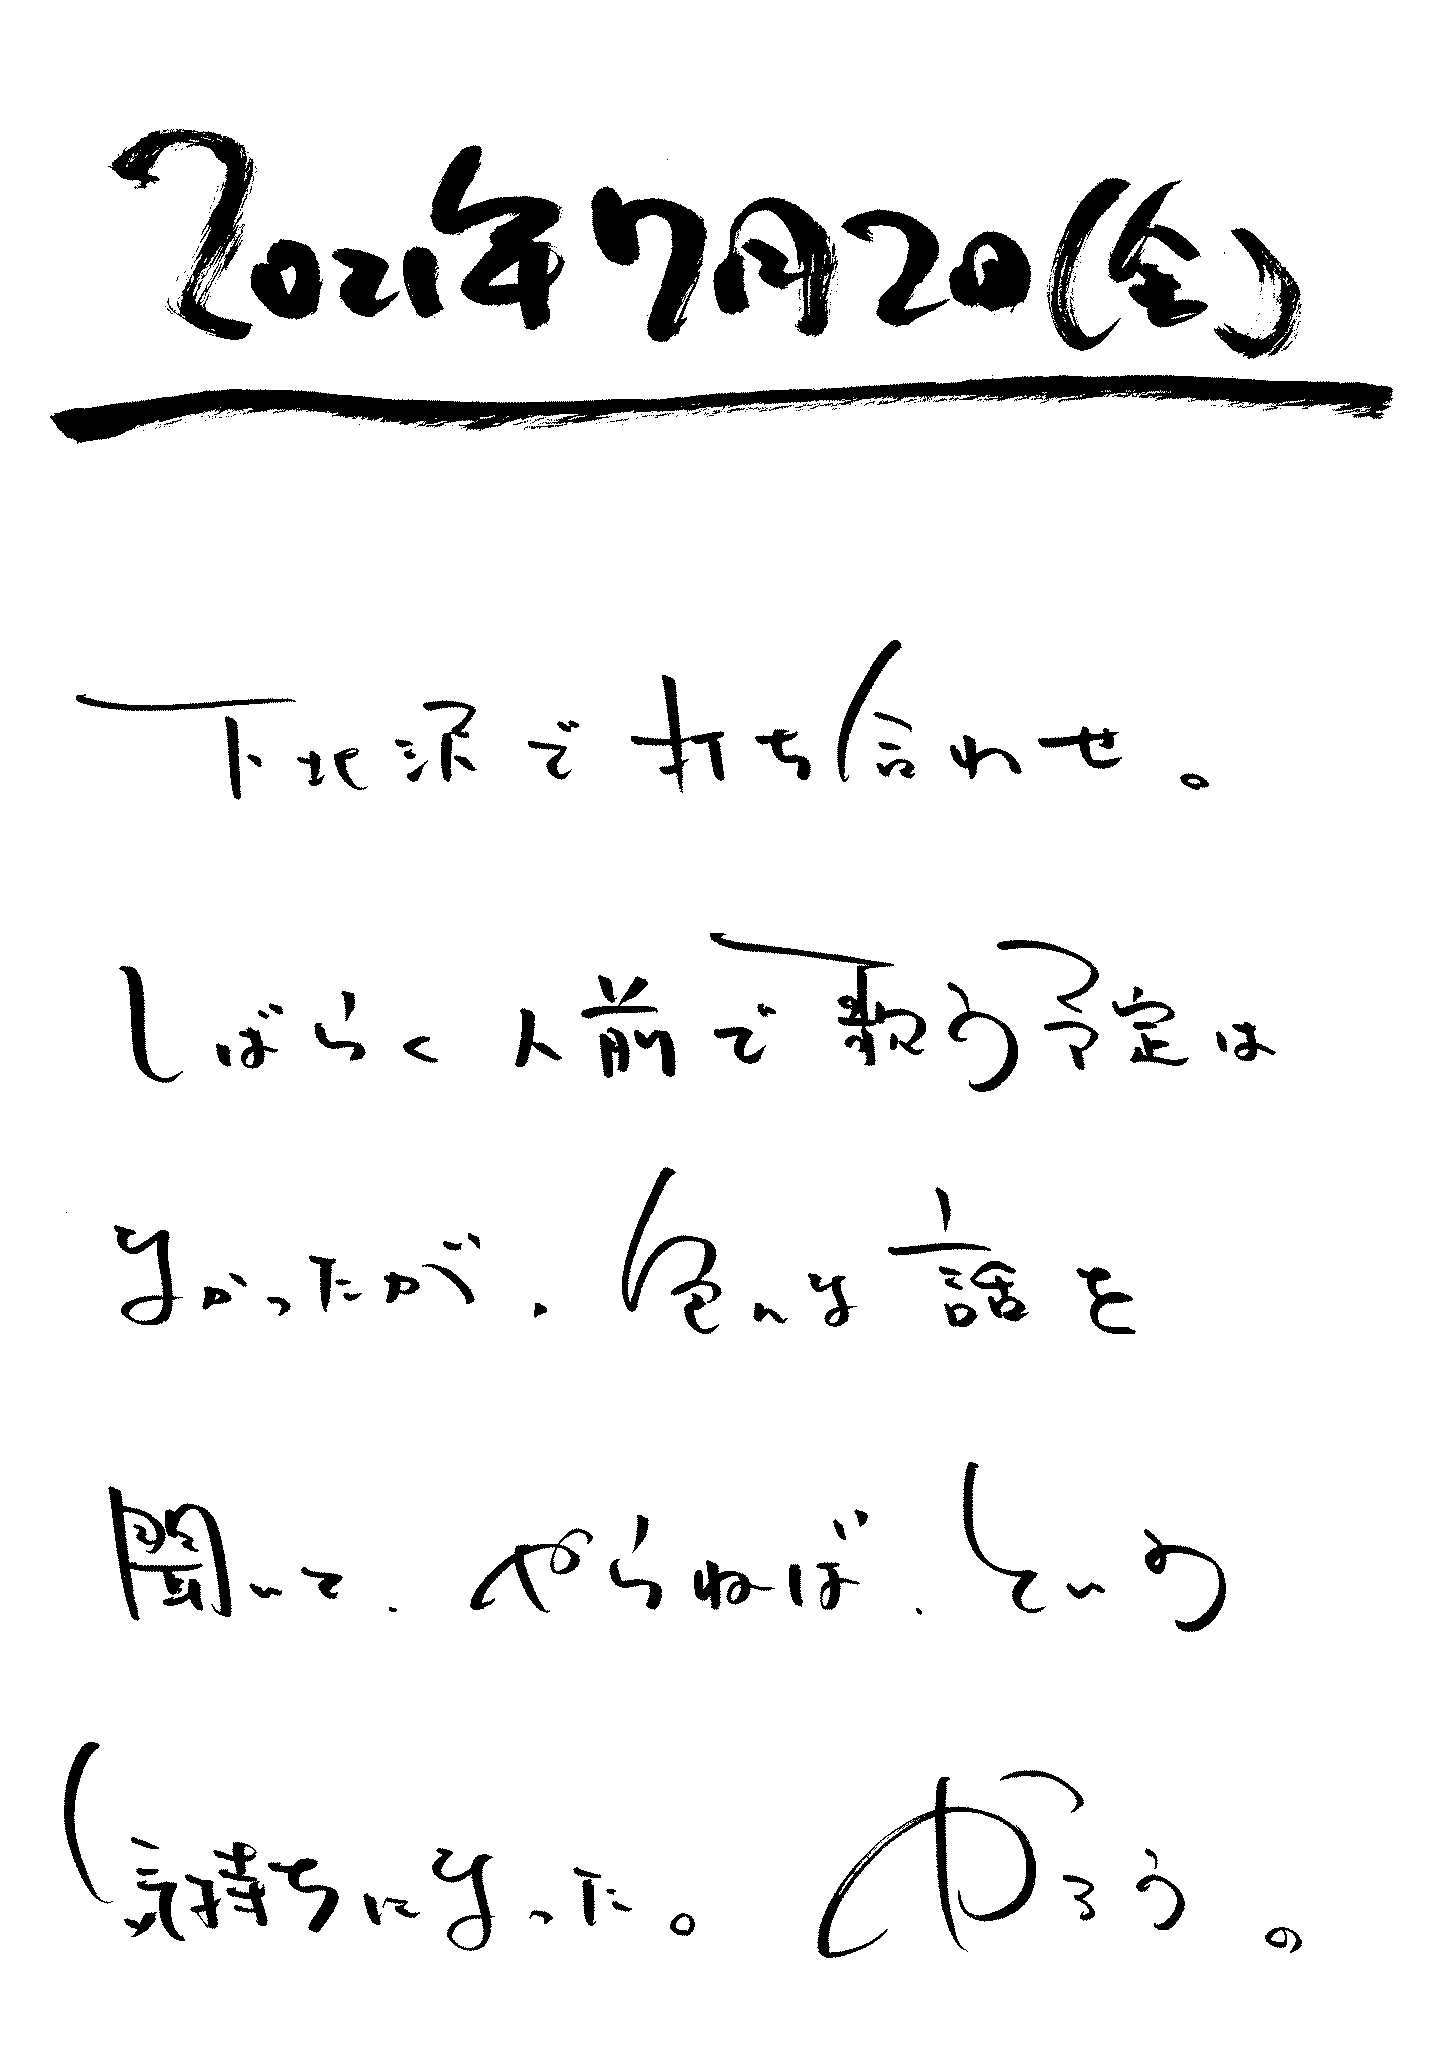 2021年7月20(金)
下北沢で打ち合わせ。
しばらく人前で歌う予定は
なかったが、色んな話を
聞いて、やらねば、という
気持ちになった。やろう。